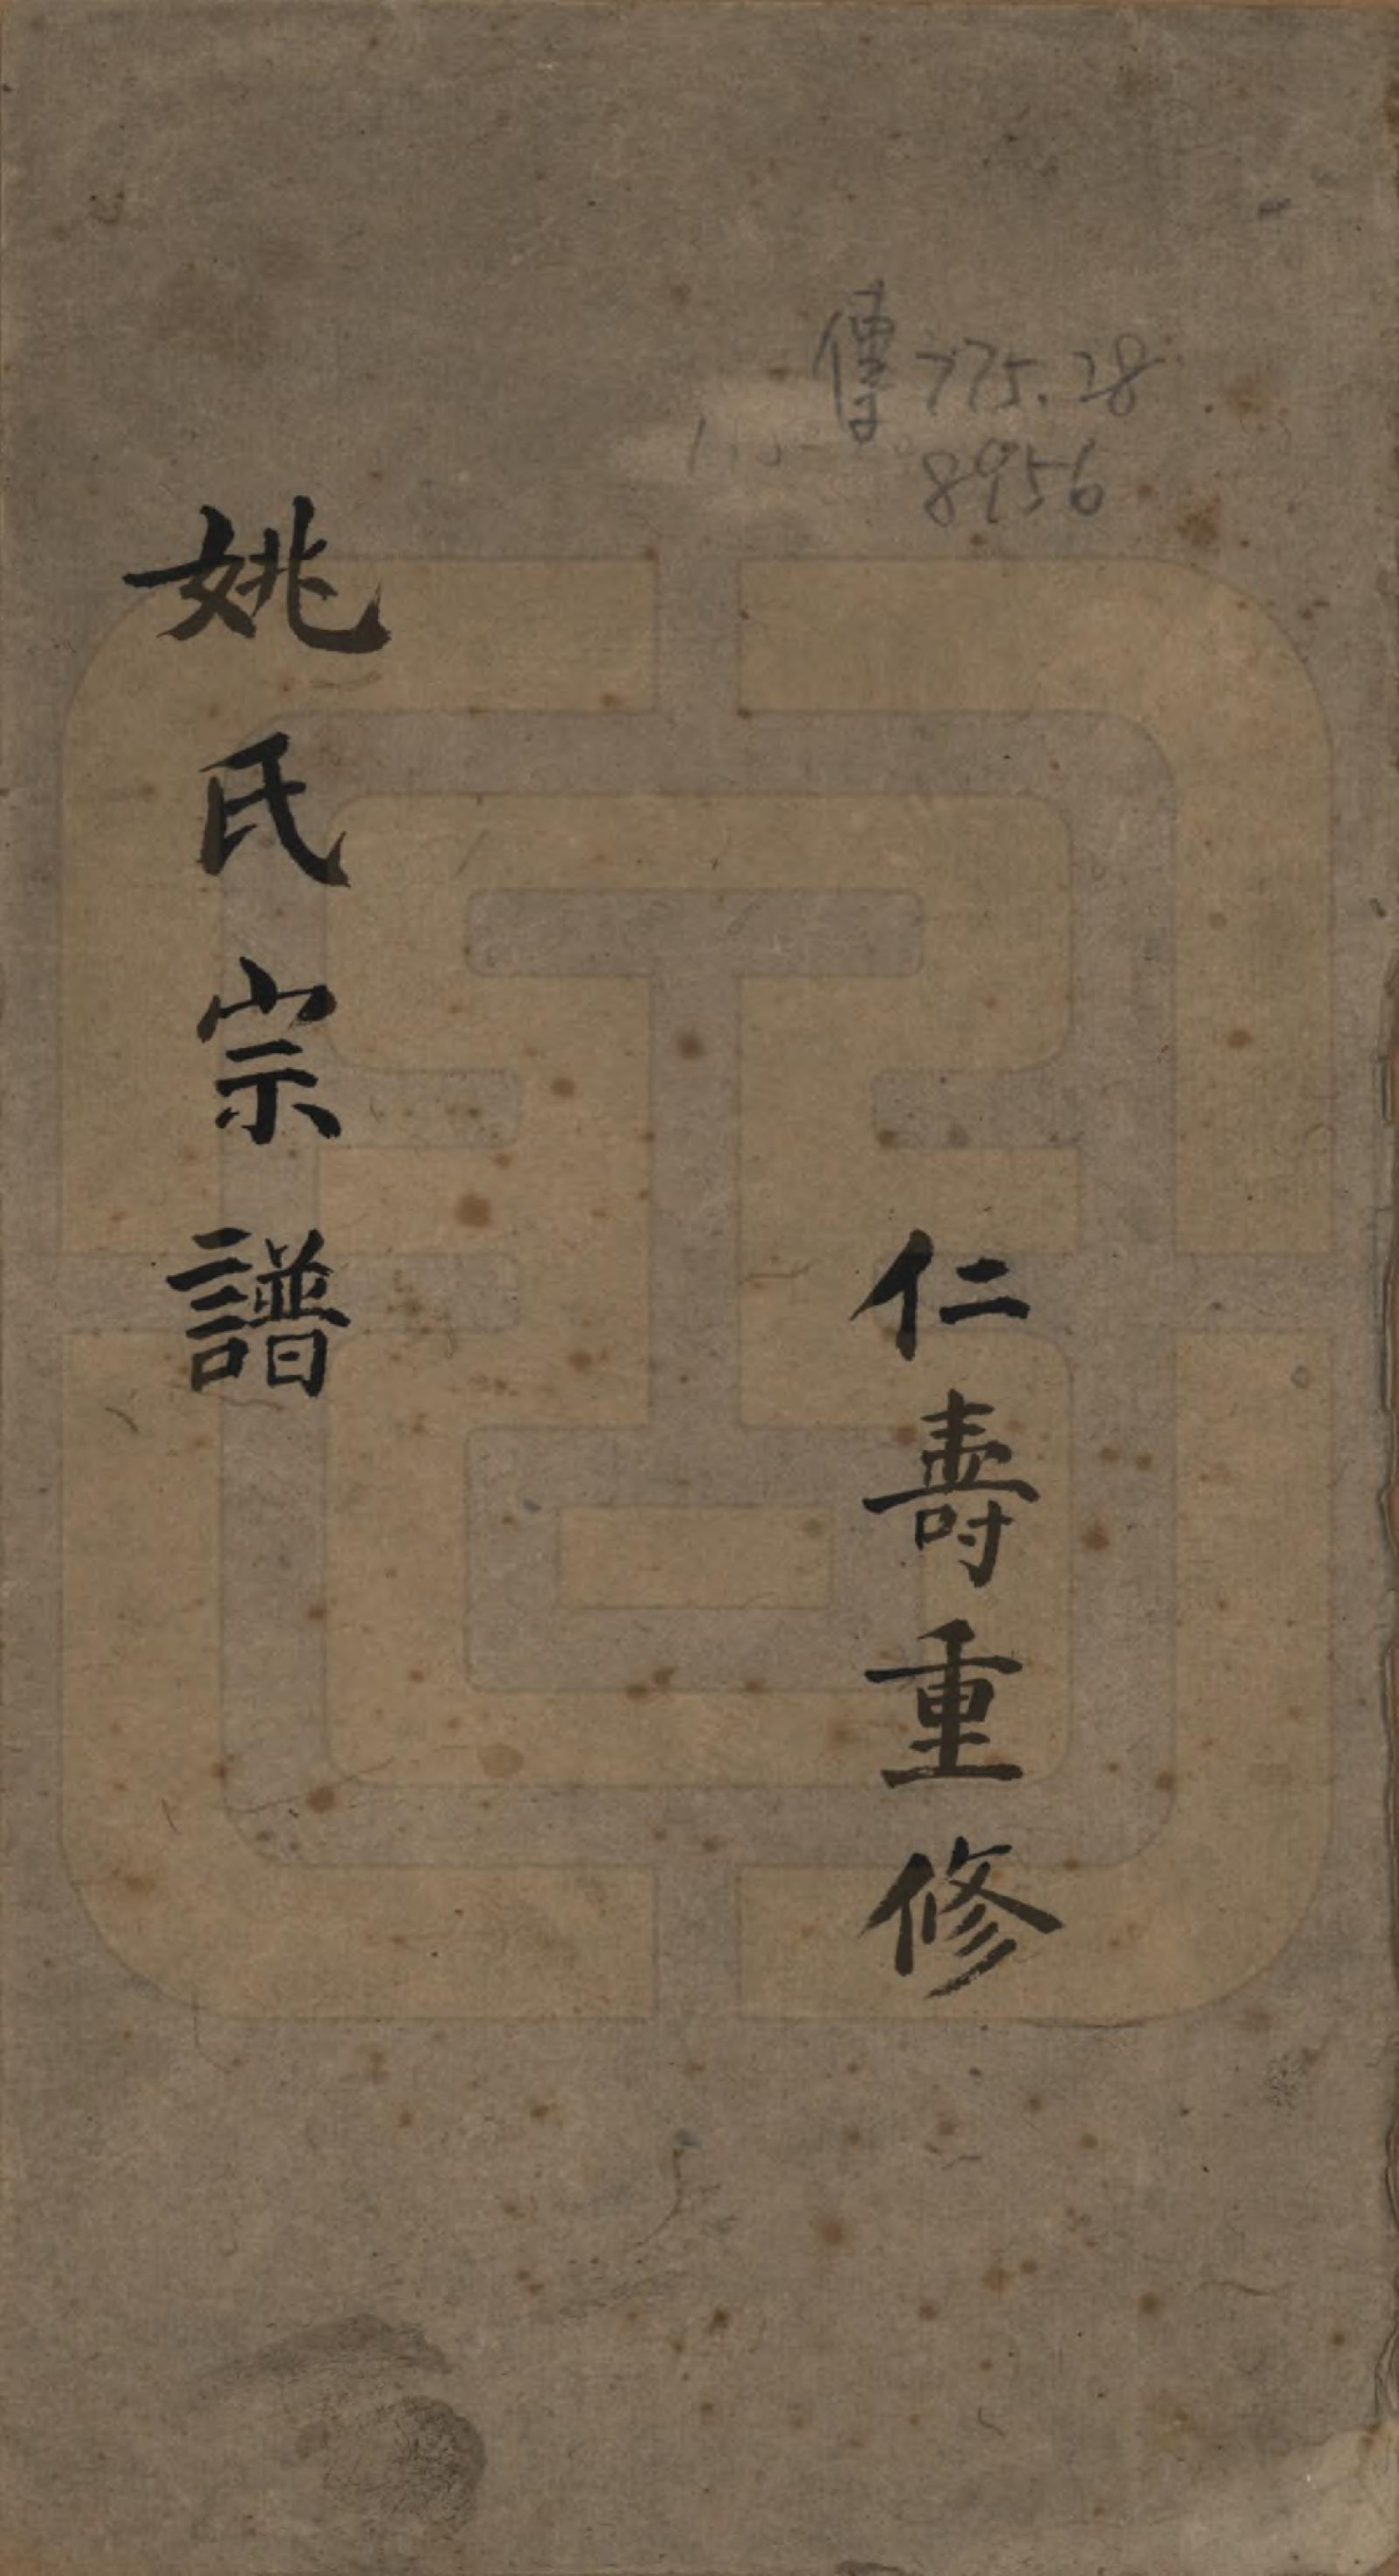 傳775.28
8956
仁壽重修
姚氏宗譜